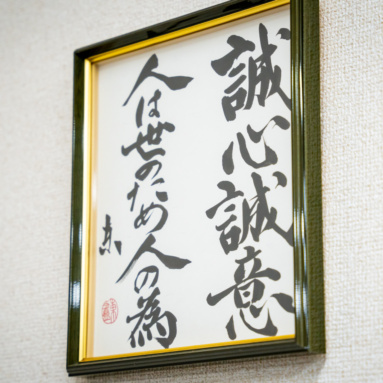 誠心誠意
人は世のため人の為